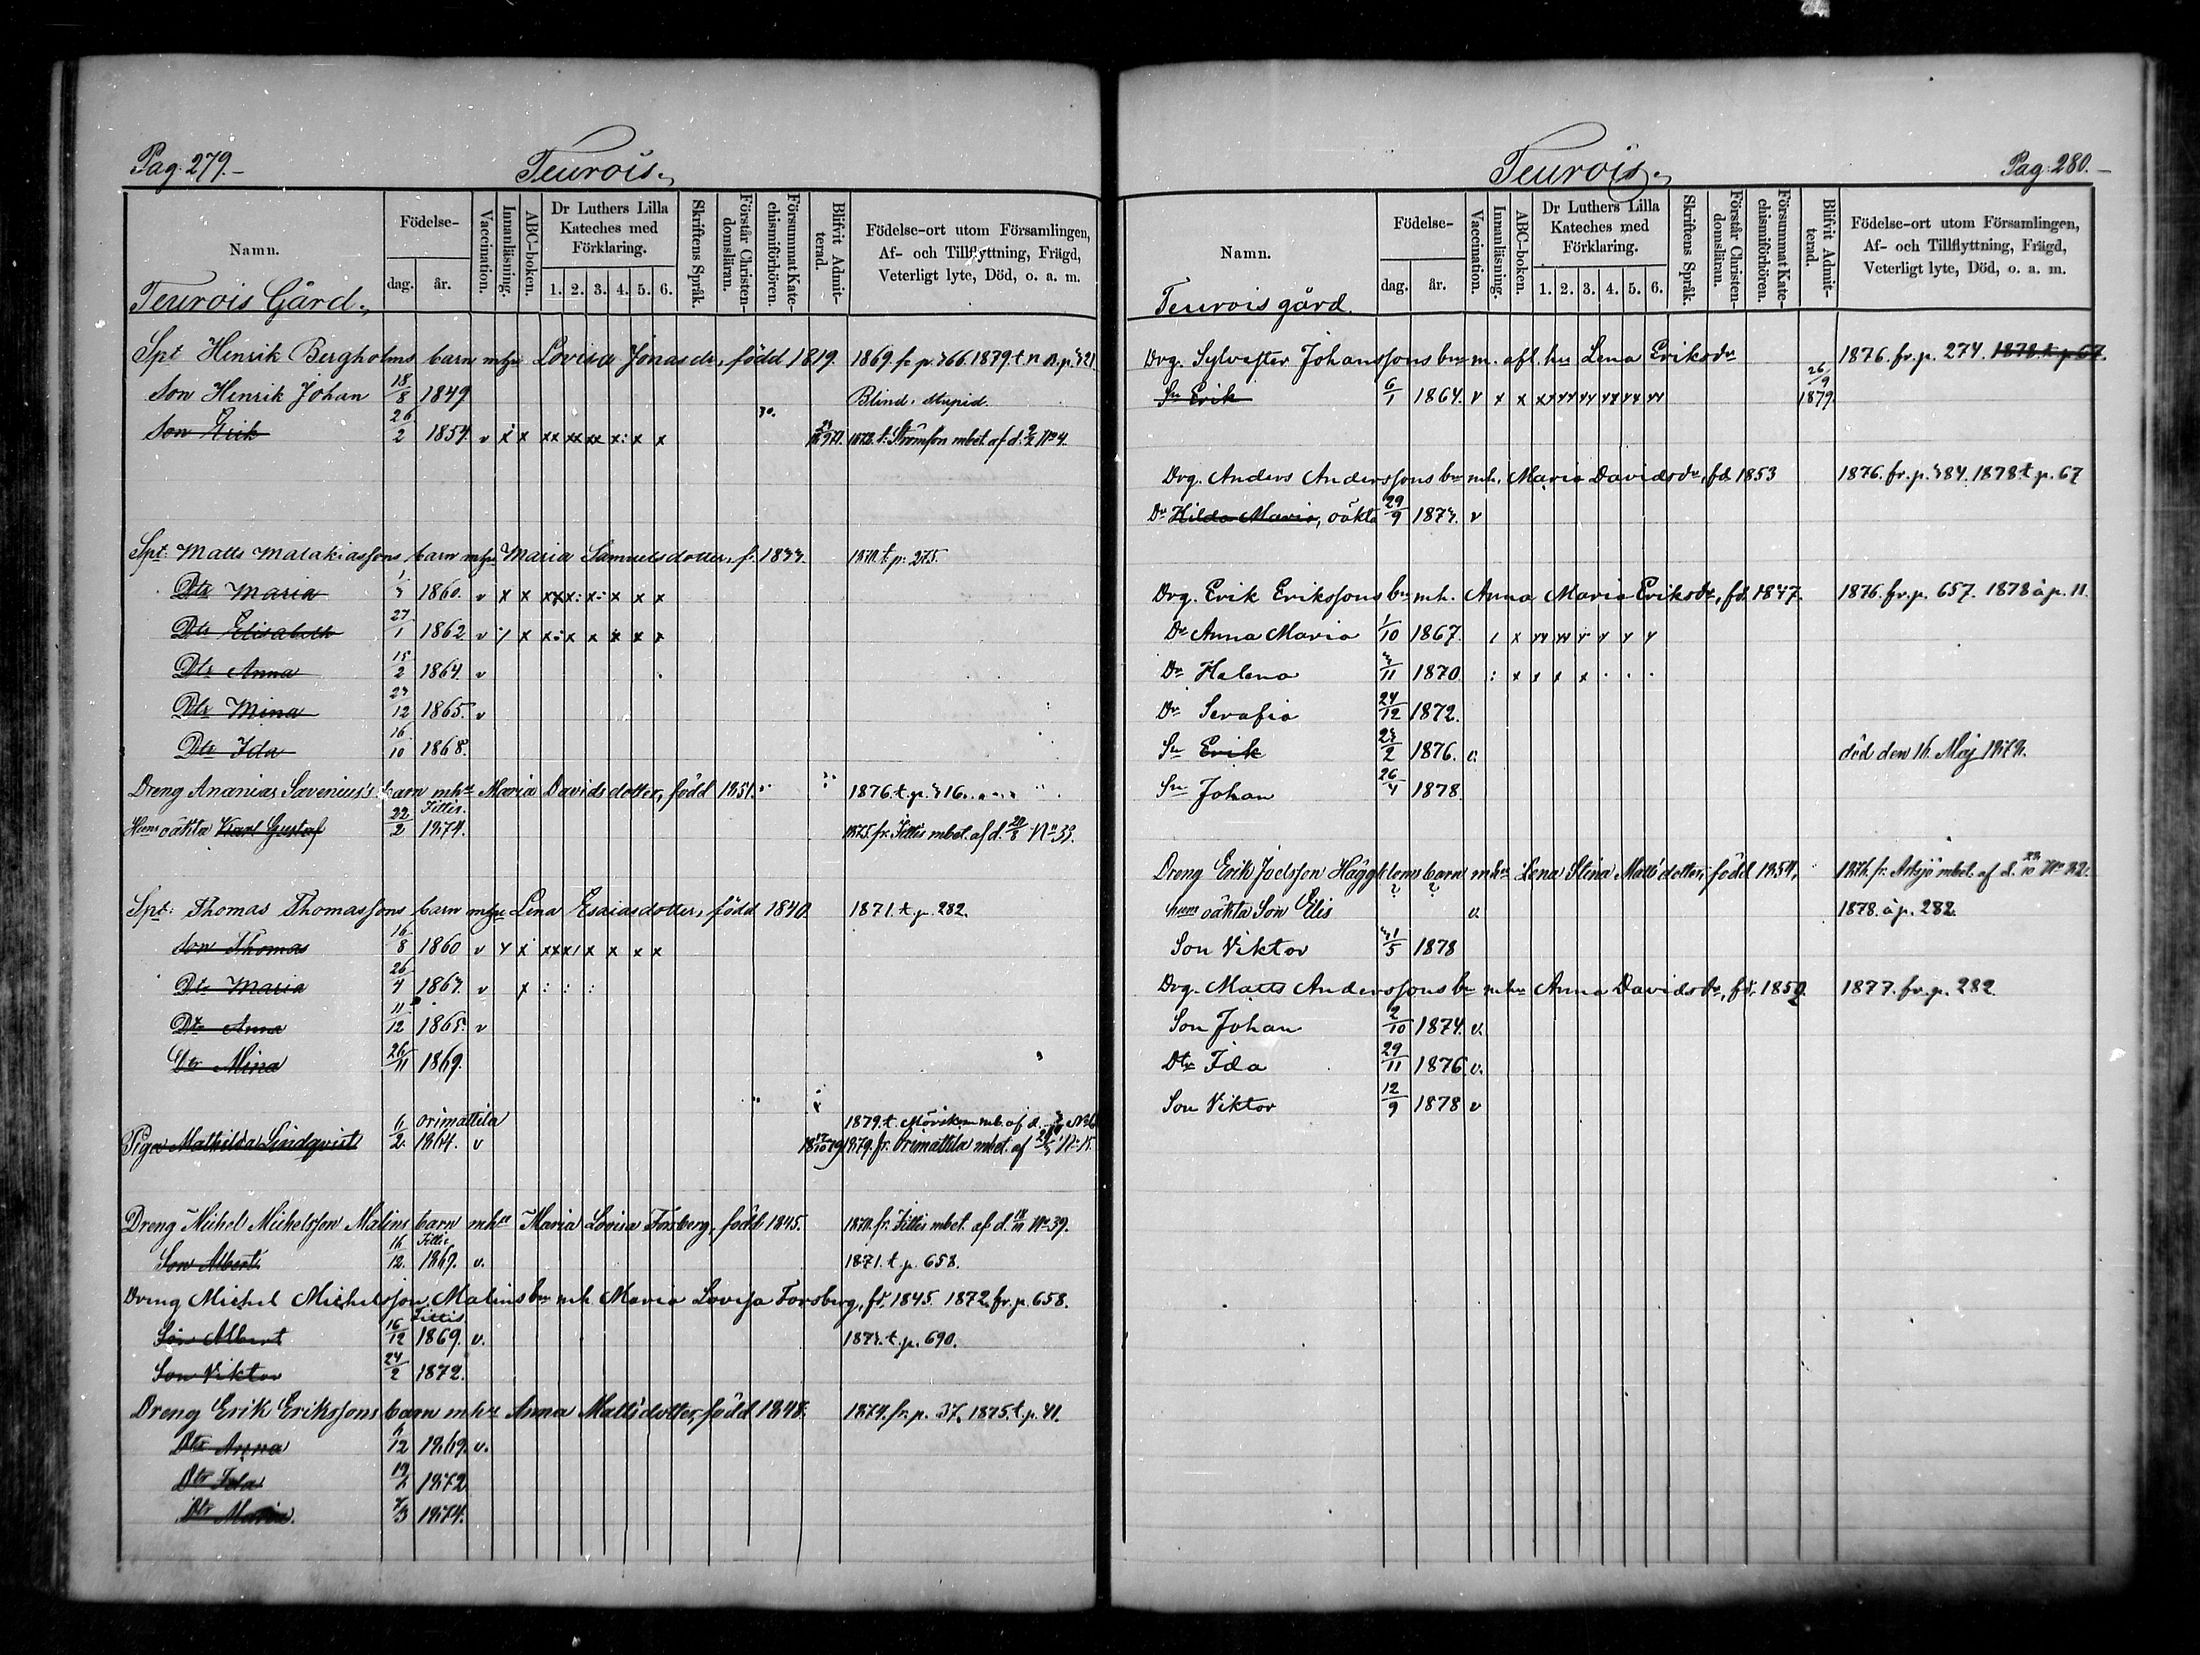 Pag: 279.
Teurois.
Namn.
Födelse-
dag.
år.
Vaccination.
Innanläsning.
ABC-boken.
Dr Luthers Lilla Kateches med Förklaring.
1. 2. 3. 4. 5. 6.
Skriftens Språk.
Förstår Christendomsläran.
Försummat Katechismiförhören.
Blifvit Admitterad.
Födelse-ort utom Församlingen, Af- och Tillflyttning, Frägd, Veterligt lyte, Död, o. a. m.
Teurois Gård.
Spt Henrik Bergholms barn mhu Lovisa Jonasdr, född 1819.
Son Henrik Johan 18/8 1849 Blind, stupid.
Son Erik 26/2 1854 v
Spt. Matts Malakiassons barn mhu Maria Samuelsdotter, f. 1833. p. 275.
Dtr Maria 1860. v
Dtr Elisabeth 27/1 1862 v
Dtr Anna 15/2 1864 v
Dtr Mina 23/12 1865. v
Dtr Ida 16/10 1868.
Dreng Ananias Savenius's barn mhu Maria Davidsdotter, född 1851. 1876. t. p. 316.
Hens oäkta Karl Gustaf 22/2 Fittis 1874. 1875. fr. Fittis mbet. af d. No 33.
Spt. Thomas Thomassons barn mhu Lena Esaiasdotter, född 1840. 1871. t. p. 282.
Son Thomas 16/8 1860 v
Dtr Maria 26/4 1863. v
Dtr Anna 11/12 1865. v
Dtr Mina 26/11 1869.
Pigan Mathilda Lindqvist 6/2 Orimattila 1864. v 1879. fr. Orimattila mbet. af
Dreng Michel Michelsson Malins barn mhu Maria Lovisa Forsberg, född 1845. 1870. fr. Fittis mbet. af d. No 39.
Son Albert 16/12 Fittis 1869. v. 1871. t. p. 658.
Dreng Michel Michelsson Malins bn mh. Maria Lovisa Forsberg, fd. 1845 1872. fr. p. 658.
Son Albert 16/12 Fittis 1869. v. 1873. t. p. 690.
Son Viktor 24/2 1872.
Dreng Erik Erikssons barn mhu Anna Mattsdotter, född 1848. 1874. fr. p. 37. 1875. t. p. 41.
Dtr Anna 1869. v.
Dtr Ida 1872
Dtr Maria. 1874.
Teurois.
Pag: 280.
Namn.
Födelse-
dag.
år.
Vaccination.
Innanläsning.
ABC-boken.
Dr Luthers Lilla Kateches med Förklaring.
1. 2. 3. 4. 5. 6.
Skriftens Språk.
Förstår Christendomsläran.
Försummat Katechismiförhören.
Blifvit Admitterad.
Födelse-ort utom Församlingen, Af- och Tillflyttning, Frägd, Veterligt lyte, Död, o. a. m.
Teurois gård.
Drg. Sylvester Johanssons bn m. afl. hu Lena Eriksdr 1876. fr. p. 274. 1878. t. p. 67.
Sn Erik 6/1 1864. v 26/9 1879
Drg. Anders Anderssons bn mh. Maria Davidsdr, fd. 1853 1876. fr. p. 384. 1878. t. p. 67
Dr Hilda Maria, oäkta 29/9 1873. v
Drg. Erik Erikssons bn mh. Anna Maria Eriksdr, fd. 1847. 1876. fr. p. 657. 1878 å p. 11.
Dr Anna Maria 1/10 1867.
Dr Helena 3/11 1870
Dr Serafia 24/12 1872.
Sn Erik 23/2 1876. v. död den 16 Maj
Sn Johan 26/4 1878
Dreng Erik Joelsson Häggbloms barn mhu Lena Stina Mattsdotter, född 1854. 1876. fr. Artsjö mbet. af d. 22/10 No 32.
hens oäkta Son Elis v. 1878. å p. 282.
Son Viktor 31/5 1878
Drg. Matts Anderssons bn mhu Anna Davidsdr, fd. 1852. 1877. fr. p. 282.
Son Johan 2/10 1874. v.
Dtr Ida 29/11 1876. v.
Son Viktor 12/9 1878 v